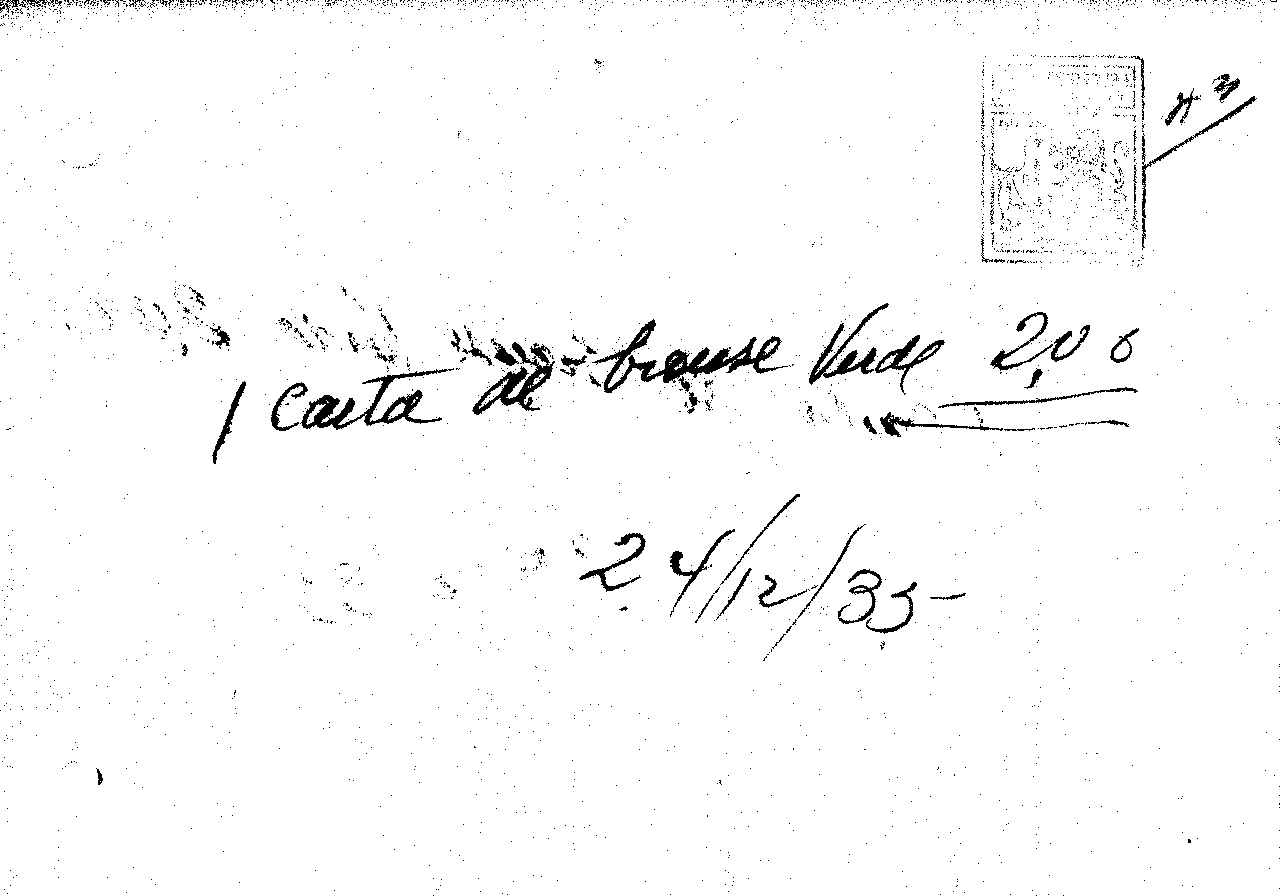 # 3
1 Carta de bronse Verde 2,00
24/12/35-